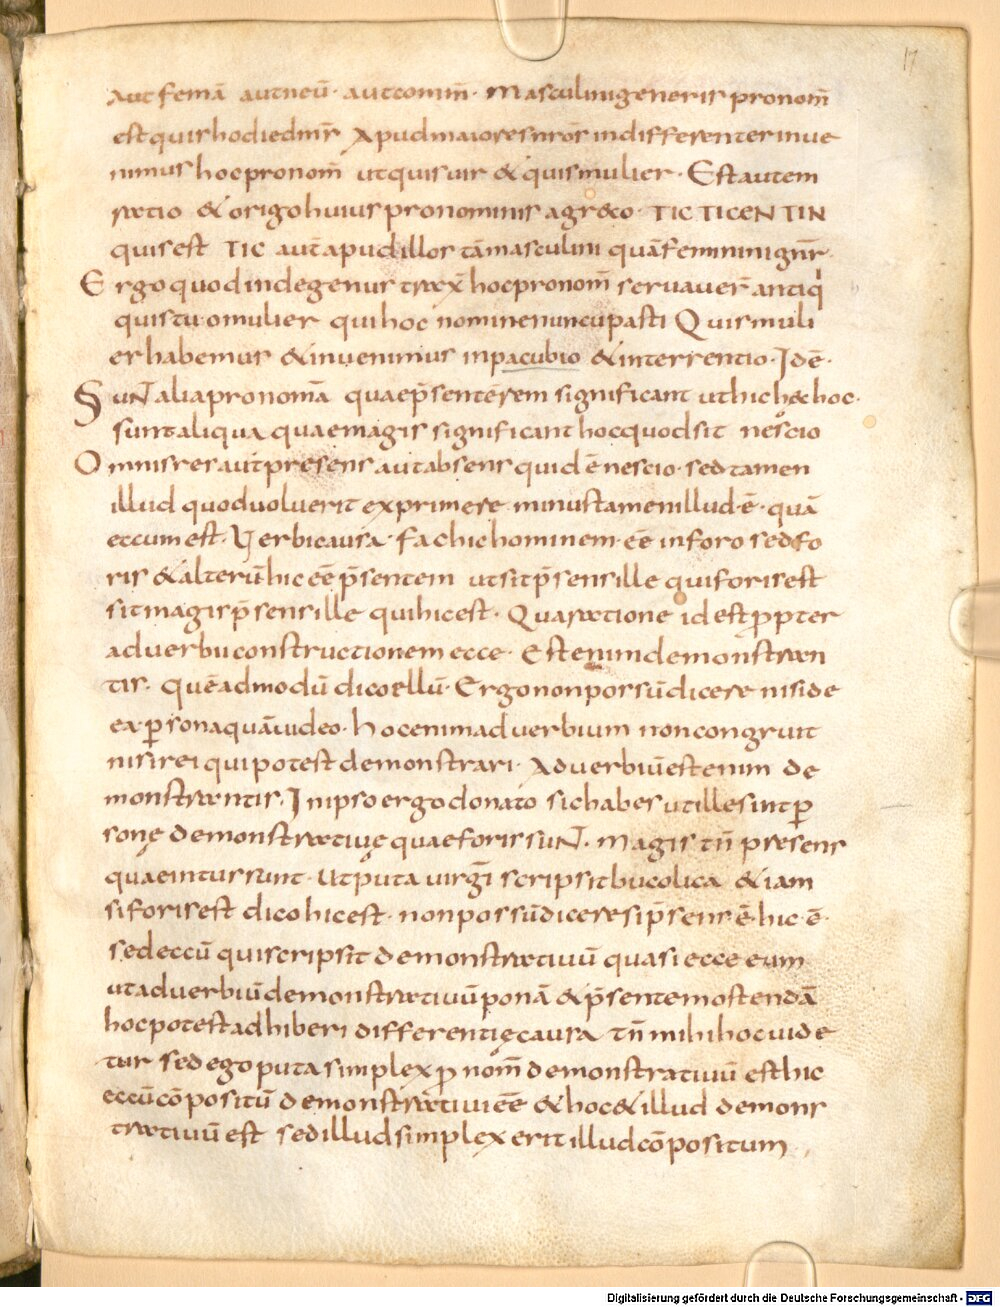 17
aut femā aut neū · aut commī · Masculini generis pronom̄
est quis hodie dnr̄ Apud maiores nrōs indifferenter inue
nimus hoc pronom̄ ut quis uir & quis mulier · Est autem
ratio & origo huius pronominis a gr&co · TIC TICEN TIN
quis est TIC aut̄ apud illos tā masculini quā feminini gn̄r̄ ·
Ergo quod indegenus trax̄ hoc pronom̄ seruauer̄ antiq
quis tu o mulier qui hoc nomine nuncupasti Quis muli
er habemus & inuenimus in pacubio & in terrentio · Idē ·
SuNT alia pronomā quae p̄sentē rem significant ut hic h&c hoc ·
sunt aliqua quae magis significant hoc quod sit nescio
Omnis res aut presens aut absens quid ē nescio · sed tamen
illud quod uoluerit exprimere minus tamen illud · ē · quā
eccum est · Uerbi causa · fac hic hominem · eē in foro sed fo
ris & alterū hic eē p̄sentem ut sit p̄sens ille qui foris est
sit magis p̄sens ille qui hic est · Qua ratione id est ppter
aduerbii constructionem ecce · Est enim demonstran
tis · quēadmodū dico ellū · Ergo non possū dicere nisi de
ea psona quā uideo · hoc enim aduerbium non congruit
nisi rei qui potest demonstrari · Aduerbiū est enim de
monstrantis · In ipso ergo donato sic habes ut ille sint p
sonę demonstratiuę quae foris suNT · Magis tn̄ presens
quae intus sunt · Ut puta uirgī scripsit bucolica & iam
si foris est dico hic est · non possū dicere si p̄sens · ē · hic · ē ·
sed eccū qui scripsit demonstratiuū quasi ecce eum
ut aduerbiū demonstratiuū ponā & p̄sentem ostendā
hoc potest adhiberi differentię causa tn̄ mihi hoc uide
tur sed ego puta simplex p nom̄ demonstratiuū est hic
eccū cōpositū demonstratiui eē & hoc & illud demons
tratiuū est sed illud simplex erit illud cōpositum
Digitalisierung gefördert durch die Deutsche Forschungsgemeinschaft - DFG